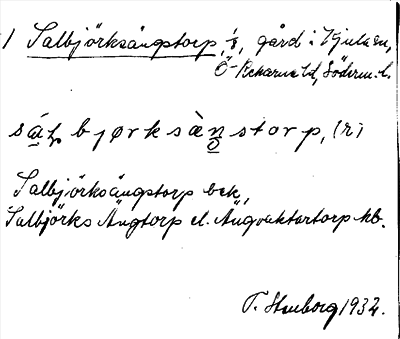 1 Salbjörksängstorp, 1/8, gård i Kjula sn,
Ö-Rekarne hd, Söderm. l.
sál bjørksàn storp, (r)
Salbjörksängstorp bek,
Salbjörks Ängtorp el. Ängvaktartorp hb.
T. Stenborg 1932.